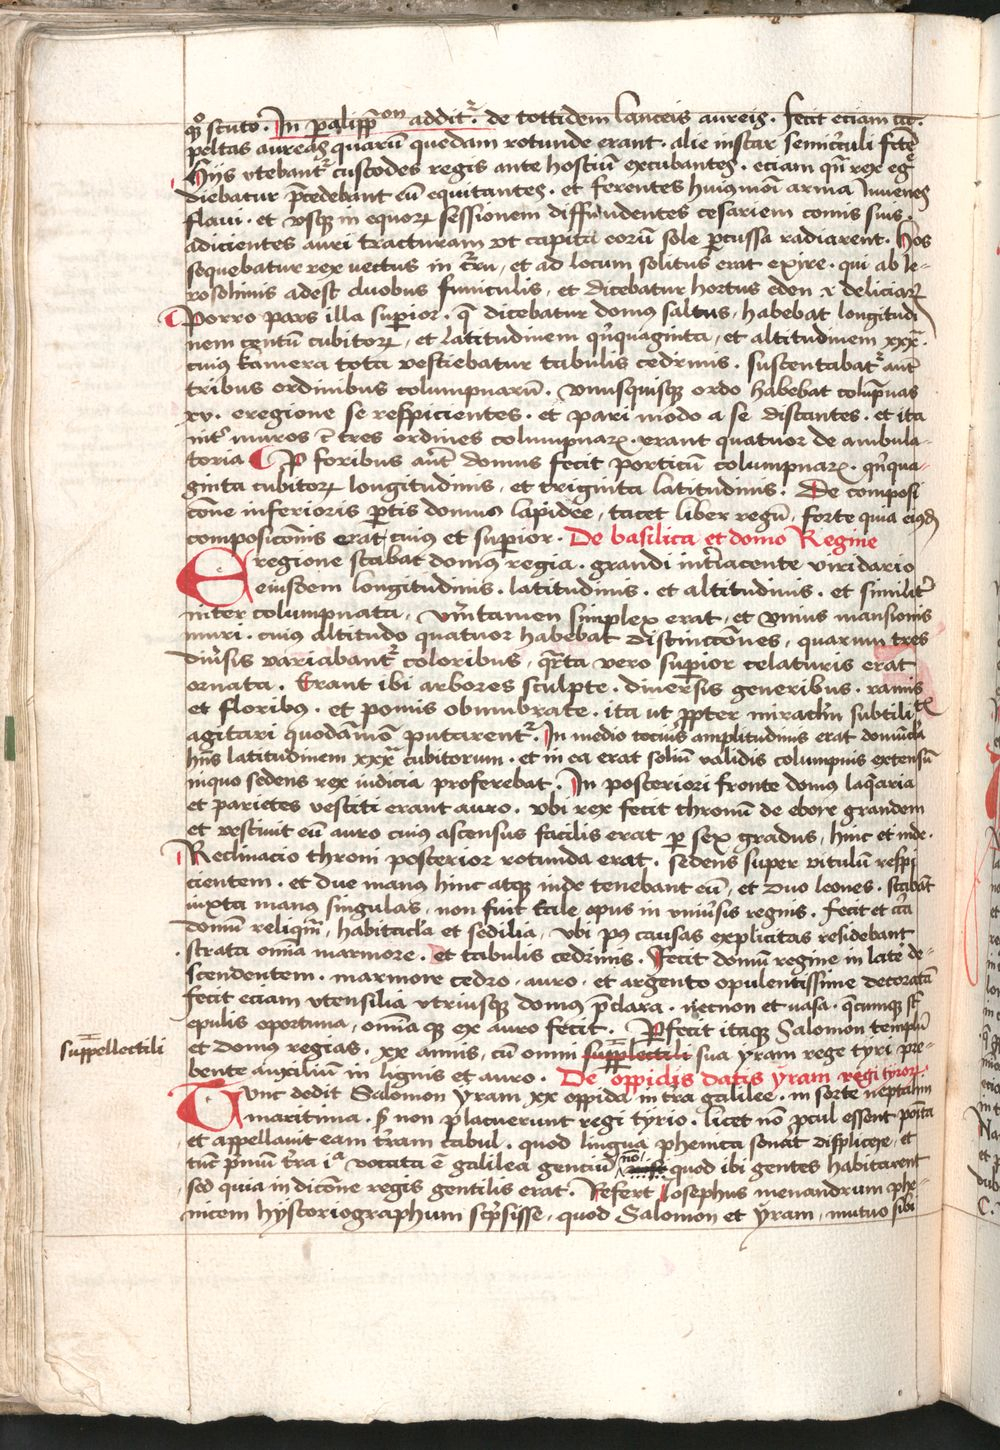 qͦ scuto. In palipp̄on addit᷑. de tottidem lanceis aureis. fecit eciam ccc.
peltas aureas quarū quedam rotunde erant. alie instar semicirculi fcē
Hiis vtebant᷑ custodes regis ante hostiū excubantes. eciam qn̄ rex eg
diebatur p̄cedebant eū equitantes. et ferentes huiꝰmōi arma Iuuenes
flaui. et vsqꝫ in equoꝝ sessionem diffundentes cesariem comis suis.
adicientes auri tracturam vt capita eorū sole ꝑcussa radiarent. Hos
sequebatur rex uectus in c̄ru, et ad locum solitus erat exire. qui ab Ie-
rosolimis adest duobus funiculis, et dicebatur hortus eden .i. deliciaꝝ
Porro pars illa suꝑior. q̄ dicebatur domus saltus, habebat longitudi
nem centū cubitoꝝ, et latitudinem qn̄quaginta, et altitudinem xxx.
cuiꝰ kamera tota vestiebatur tabulis cedrinis. sustentabat᷑ aūt
tribus ordinibus columpnarū. vnusquisqꝫ ordo habebat colūpnas
xv. eregione se respicientes. et pari modo a se distantes. et ita
int᷑ muros ⁊ tres ordines columpnaꝝ. erant quatuor de ambula-
toria P foribus aūt domus fecit porticū columpnaꝝ. qn̄qua-
ginta cubitoꝝ longitudinis, et triginta latitudinis. De composi
cōne inferioris ꝑtis domus lapidee, tacet liber regū. forte quia eiꝰd
composicōnis erat cuiꝰ et suꝑior. De basilica et domo Regine
Eregione stabat domus regia. grandi int̄iacente viridario
eiusdem longitudinis. latitudinis. et altitudinis. et similit᷑
inter columpnata. vm̄tamen simplex erat, et vnius mansionis
muri. cuiꝰ altitudo quatuor habebat distincōnes, quarum tres
diūsis variabant᷑ coloribus, qr̄ta vero suꝑior celaturis erat
ornata. Erant ibi arbores sculpte. diuersis generibus. ramis
et floribꝰ. et pomis obumbrate. ita ut ꝓpter miraclm̄ subtilitꝭ
agitari quodāmō putarent᷑. In medio tociꝰ amplitudinis erat domūcla
hn̄s latitudinem xxx cubitorum. et in ea erat soliū validis columpnis extensū
inquo sedens rex iudicia proferebat. In posteriori fronte domus laq̄aria
et parietes vestiti erant auro. vbi rex fecit thronū de ebore grandem
et vestiuit eū auro cuiꝰ ascensus facilis erat ꝑ sex gradus, hinc et inde.
Reclinacio throni posterior rotunda erat. sedens super vitulū respi
cientem. et due manus hinc atqꝫ inde tenebant eū, et duo leones. stabāt
iuxta manus singulas, non fuit tale opus in vniūsis regnis. fecit et c̄ca
domū reliqm̄, habitacl̄a et sedilia, vbi pꝰ causas explicitas residebant
strata omīa marmore. et tabulis cedrinis. Fecit domū regine in latē de-
scendentem. marmore cedro. auro. et argento opulentissime decoratā
fecit eciam vtensilia vtriusqꝫ domus p̄clara. necnon et uasa. q̄cumqꝫ st̄
epulis oportuna, omīa qꝫ ex auro fecit. Ꝑfecit itaqꝫ Salomon templū
et domus regias. xx annis, cū omni supplectili sua yram rege tyri pre-
suppellectili
bente auxiliū in lignis et auro. De oppidis datis yram regi tyrioꝝ
Tunc dedit Salomon yram xx oppida in tra galilee. in sorte neptalim
maritima. sꝫ non placuerunt regi tyrio. licet nō ꝓcul essent posita
et appellauit eam t̄ram cabul. quod lingua phenica sonat displicēre, et
tūc p̄mū t̄ra iᵃ vocata ē galilea genciū nō quod ibi gentes habitarent
sed quia in dicōne regis gentilis erat. Refert Iosephus menandrum phe-
nicem hystoriographum sc̄psisse, quod Salomon et yram, mutuo sibi